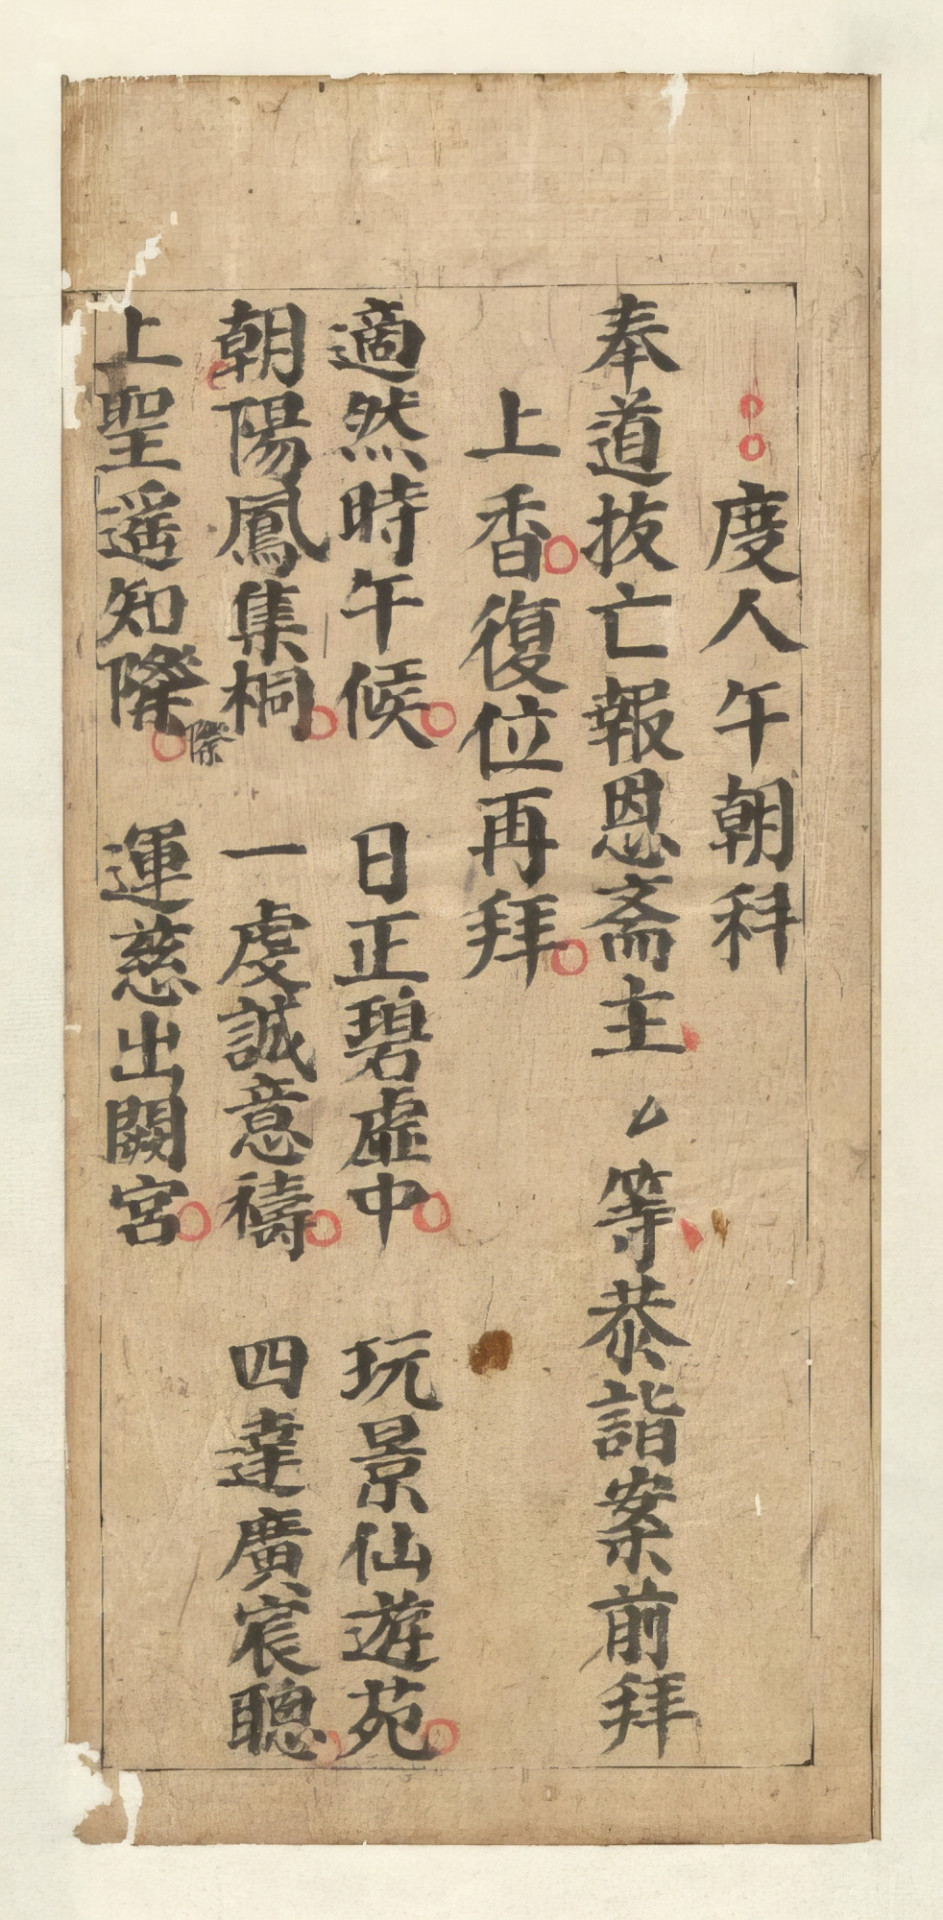 度人午朝科
奉道拔亡報恩斎主 等恭詣案前拜
上香復位再拜
適然時午候 日正碧虛中 玩景仙遊苑
朝陽鳳集桐 一虔誠意禱 四達廣宸聰
上聖遥知際 運慈出闕宮
際